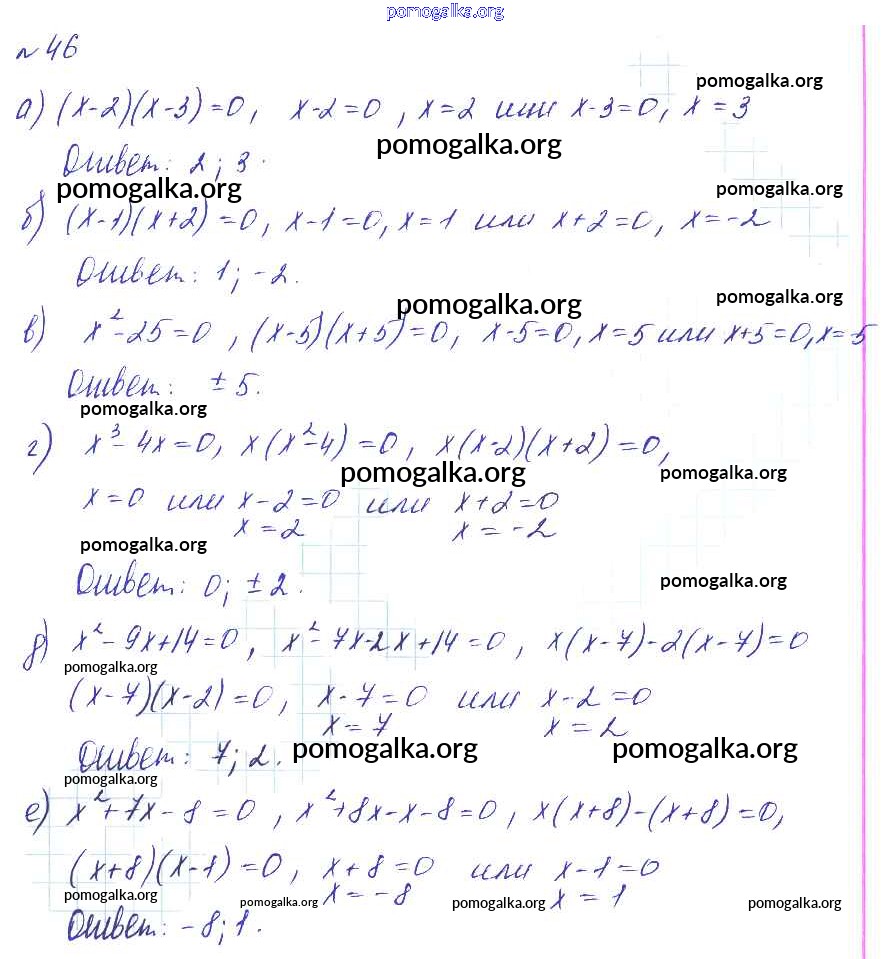 pomogalka.org
№ 46
pomogalka.org
а) (x-2)(x-3)=0, x-2=0, x=2 или x-3=0, x=3
pomogalka.org
Ответ: 2; 3.
pomogalka.org pomogalka.org
б) (x-1)(x+2)=0, x-1=0, x=1 или x+2=0, x=-2
Ответ: 1; -2.
pomogalka.org pomogalka.org
в) x²-25=0, (x-5)(x+5)=0, x-5=0, x=5 или x+5=0, x=-5
Ответ: ±5.
pomogalka.org
г) x³-4x=0, x(x²-4)=0, x(x-2)(x+2)=0,
pomogalka.org pomogalka.org
x=0 или x-2=0 или x+2=0
x=2 x=-2
pomogalka.org
Ответ: 0; ±2.
pomogalka.org
д) x²-9x+14=0, x²-7x-2x+14=0, x(x-7)-2(x-7)=0
pomogalka.org
(x-7)(x-2)=0, x-7=0 или x-2=0
x=7 x=2
Ответ: 7; 2.
pomogalka.org pomogalka.org
pomogalka.org
е) x²+7x-8=0, x²+8x-x-8=0, x(x+8)-(x+8)=0,
(x+8)(x-1)=0, x+8=0 или x-1=0
x=-8 x=1
pomogalka.org pomogalka.org pomogalka.org pomogalka.org
Ответ: -8; 1.